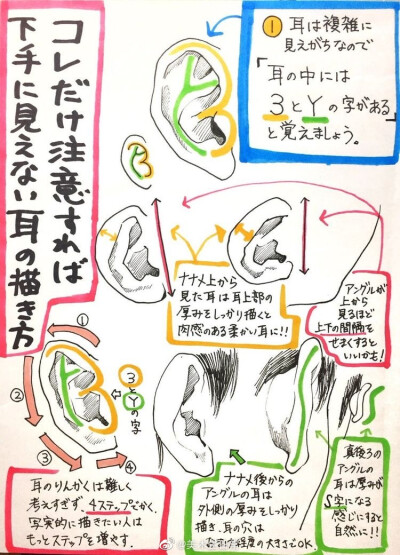 コレだけ注意すれば
下手に見えない耳の描き方
① 耳は複雑に
見えがちなので
「耳の中には
3とYの字がある」
と覚えましょう。
ナナメ上から
見た耳は耳上部の
厚みをしっかり描くと
肉感のある柔かい耳に!!
アングルが
上から
見るほど
上下の間隔を
せまくすると
いいかも!
①
②
③
④
3
と
Yの字
耳のりんかくは難しく
考えすぎず、4ステップでかく。
写実的に描きたい人は
もっとステップを増やす。
ナナメ後からの
アングルの耳は
外側の厚みをしっかり
描き、耳の穴は
大きさでOK
真後ろの
アングルの
耳は厚みが
S字になる
感じにすると
自然に!!